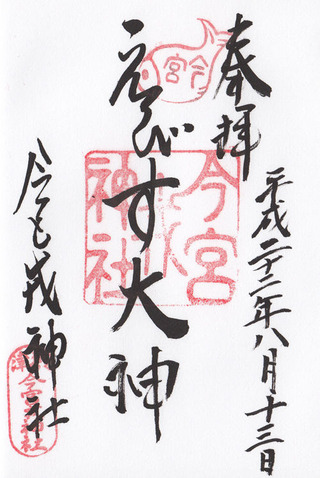 奉拝
平成二十二年八月十三日
今宮
えびす大神
今宮
神社
今宮戎神社